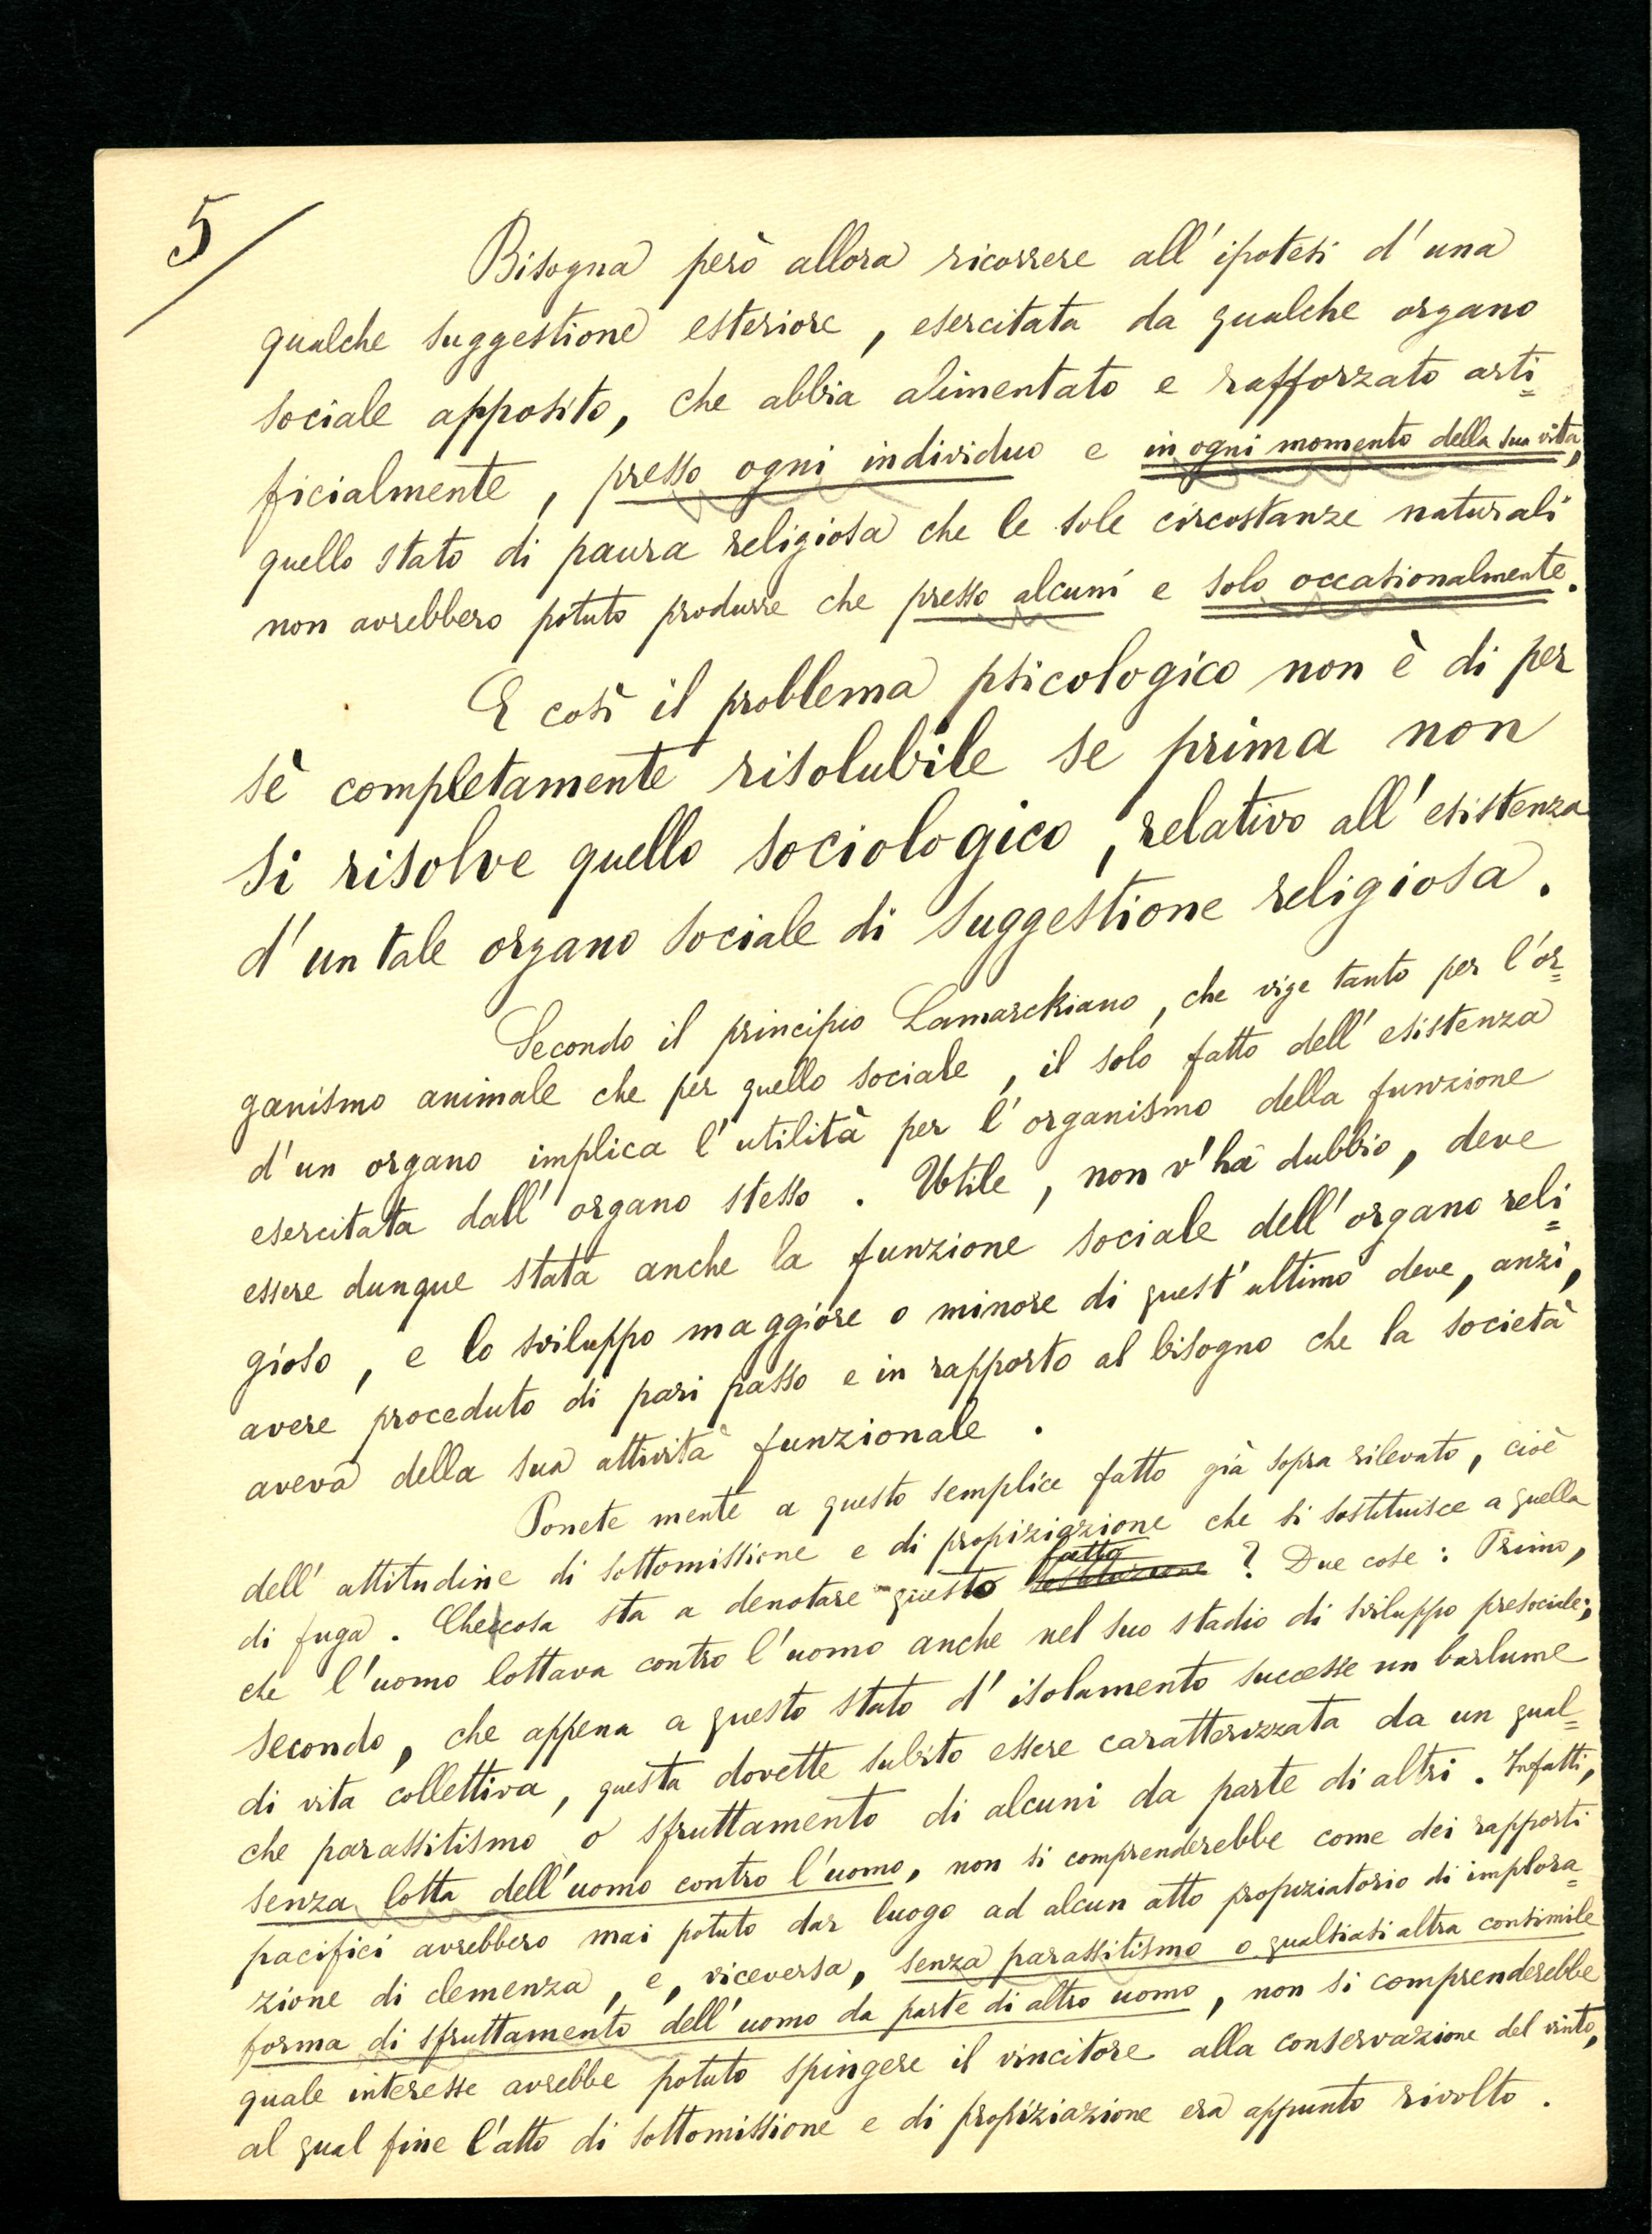 5/
Bisogna però allora ricorrere all'ipotesi d'una
qualche suggestione esteriore, esercitata da qualche organo
sociale apposito, che abbia alimentato e rafforzato arti=
ficialmente, presso ogni individuo e in ogni momento della sua vita,
quello stato di paura religiosa che le sole circostanze naturali
non avrebbero potuto produrre che presso alcuni e solo occasionalmente.
E così il problema psicologico non è di per
sè completamente risolubile se prima non
si risolve quello sociologico, relativo all'esistenza
d'un tale organo sociale di suggestione religiosa.
Secondo il principio Lamarckiano, che vige tanto per l'or=
ganismo animale che per quello sociale, il solo fatto dell'esistenza
d'un organo implica l'utilità per l'organismo della funzione
esercitata dall'organo stesso. Utile, non v'ha dubbio, deve
essere dunque stata anche la funzione sociale dell'organo reli=
gioso, e lo sviluppo maggiore o minore di quest'ultimo deve, anzi,
avere proceduto di pari passo e in rapporto al bisogno che la società
aveva della sua attività funzionale.
Ponete mente a questo semplice fatto già sopra rilevato, cioè
dell'attitudine di sottomissione e di propiziazione che si sostituisce a quella
fatto
di fuga. Checcosa sta a denotare questo ? Due cose: Primo,
che l'uomo lottava contro l'uomo anche nel suo stadio di sviluppo presociale;
secondo, che appena a questo stato d'isolamento successe un barlume
di vita collettiva, questa dovette subito essere caratterizzata da un qual=
che parassitismo o sfruttamento di alcuni da parte di altri. Infatti,
senza lotta dell'uomo contro l'uomo, non si comprenderebbe come dei rapporti
pacifici avrebbero mai potuto dar luogo ad alcun atto propiziatorio di implora=
zione di clemenza, e, viceversa, senza parassitismo o qualsiasi altra consimile
forma di sfruttamento dell'uomo da parte di altro uomo, non si comprenderebbe
quale interesse avrebbe potuto spingere il vincitore alla conservazione del vinto,
al qual fine l'atto di sottomissione e di propiziazione era appunto rivolto.